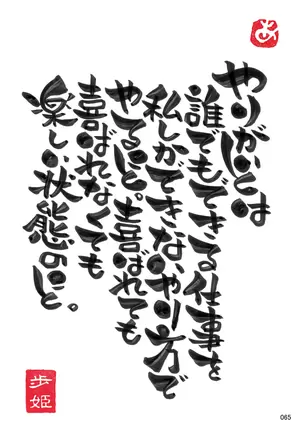 あ
やりがいとは
誰でもできる仕事を
私しかできないやり方で
やること。喜ばれても
喜ばれなくても
楽しい状態のこと。
歩姫
065